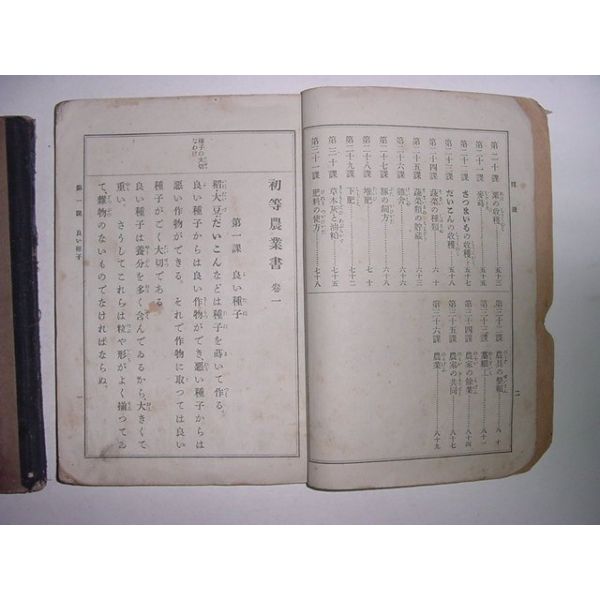 目次
第二十課 栗の收穫……五十三
第二十一課 ……五十五
第二十二課 さつまいもの收穫……五十七
第二十三課 だいこんの收穫……五十八
第二十四課 蔬菜の種類……六十
第二十五課 蔬菜類の貯藏……六十
第二十六課 ……六十六
第二十七課 豚の飼方……六十八
第二十八課 堆肥……七十
第二十九課 下肥……七十二
第三十課 草木灰と油粕……七十五
第三十一課 肥料の使方……七十八
第三十二課 農具の整頓……八十
第三十三課 ……八十一
第三十四課 農家の餘業……八十四
第三十五課 農家の共同……八十七
第三十六課 農業……八十九
二
種子の大切
なわけ
初等農業書 卷一
第一課 良い種子
稻大豆だいこんなどは種子を蒔いて作る。
良い種子からは良い作物ができ、惡い種子からは
惡い作物ができる。それで作物に取つては良い
種子がごく大切である
良い種子は養分を多く含んでゐるから、大きくて
重い。さうしてこれらは粒や形がよく揃つてゐ
て、雜物のないものでなければならぬ。
第一課 良い種子
一